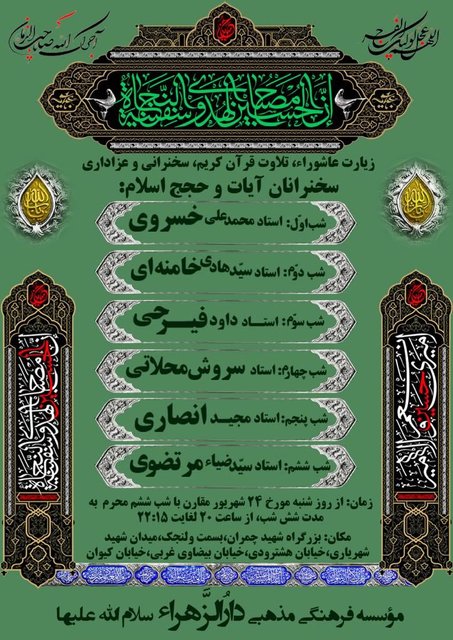 اللهم عجل لولیک الفرج
آجرک الله یا صاحب الزمان
ان الحسین مصباح الهدی و سفینة النجاة
زیارت عاشوراء، تلاوت قرآن کریم، سخنرانی و عزاداری
سخنرانان آیات و حجج اسلام:
شب اوّل: استاد محمدعلی خسروی
شب دوّم: استاد سیّدهادی خامنه‌ای
شب سوّم: استاد داود فیرحی
شب چهارم: استاد سروش محلاتی
شب پنجم: استاد مجید انصاری
شب ششم: استاد سیّد ضیاء مرتضوی
زمان: از روز شنبه مورخ ۲۴ شهریور مقارن با شب ششم محرم به
مدت شش شب، از ساعت ۲۰ لغایت ۲۲:۱۵
مکان: بزرگراه شهید چمران، بسمت ولنجک، میدان شهید
شهریاری، خیابان هشترودی، خیابان بیضاوی غربی، خیابان کیوان
مؤسسه فرهنگی مذهبی دارُالزَّهراء سلام الله علیها